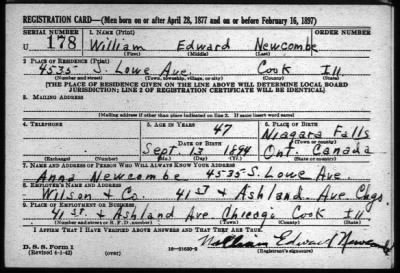 REGISTRATION CARD—(Men born on or after April 28, 1877 and on or before February 16, 1897)
SERIAL NUMBER 1. NAME (Print) ORDER NUMBER
U 178 William Edward Newcombe
(First) (Middle) (Last)
2. PLACE OF RESIDENCE (Print)
4535 S. Lowe Ave. Cook Ill.
(Number and street) (Town, township, village, or city) (County) (State)
[THE PLACE OF RESIDENCE GIVEN ON THE LINE ABOVE WILL DETERMINE LOCAL BOARD
JURISDICTION; LINE 2 OF REGISTRATION CERTIFICATE WILL BE IDENTICAL]
3. MAILING ADDRESS
[Mailing address if other than place indicated on line 2. If same insert word same]
4. TELEPHONE 5. AGE IN YEARS 6. PLACE OF BIRTH
47 Niagara Falls
DATE OF BIRTH (Town or county)
Sept. 13 1894 Ont. Canada
(Exchange) (Number) (Mo.) (Day) (Yr.) (State or country)
7. NAME AND ADDRESS OF PERSON WHO WILL ALWAYS KNOW YOUR ADDRESS
Anna Newcombe 4535 S. Lowe Ave
8. EMPLOYER'S NAME AND ADDRESS
Wilson & Co. 41st & Ashland Ave Chgo.
9. PLACE OF EMPLOYMENT OR BUSINESS
41st & Ashland Ave Chicago Cook Ill
(Number and street or R. F. D. number) (Town) (County) (State)
I AFFIRM THAT I HAVE VERIFIED ABOVE ANSWERS AND THAT THEY ARE TRUE.
D. S. S. Form 1 William Edward Newcombe
(Revised 4-1-42) (over) 16—21630-2 (Registrant's signature)